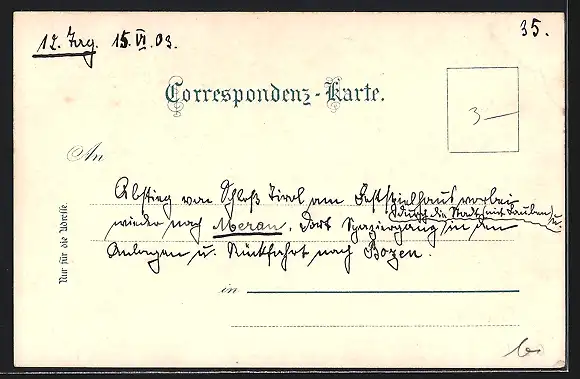 12. Trg. 15. VI. 03.
35.
Correspondenz-Karte.
3-
An
Abstieg von Schloß Tirol am Festspielhaus vorbei
(durch die Stadt mit Lauben) u.
wieder nach Meran. Dort Spaziergang in den
Anlagen u. Rückfahrt nach Bozen.
Nur für die Adresse.
in